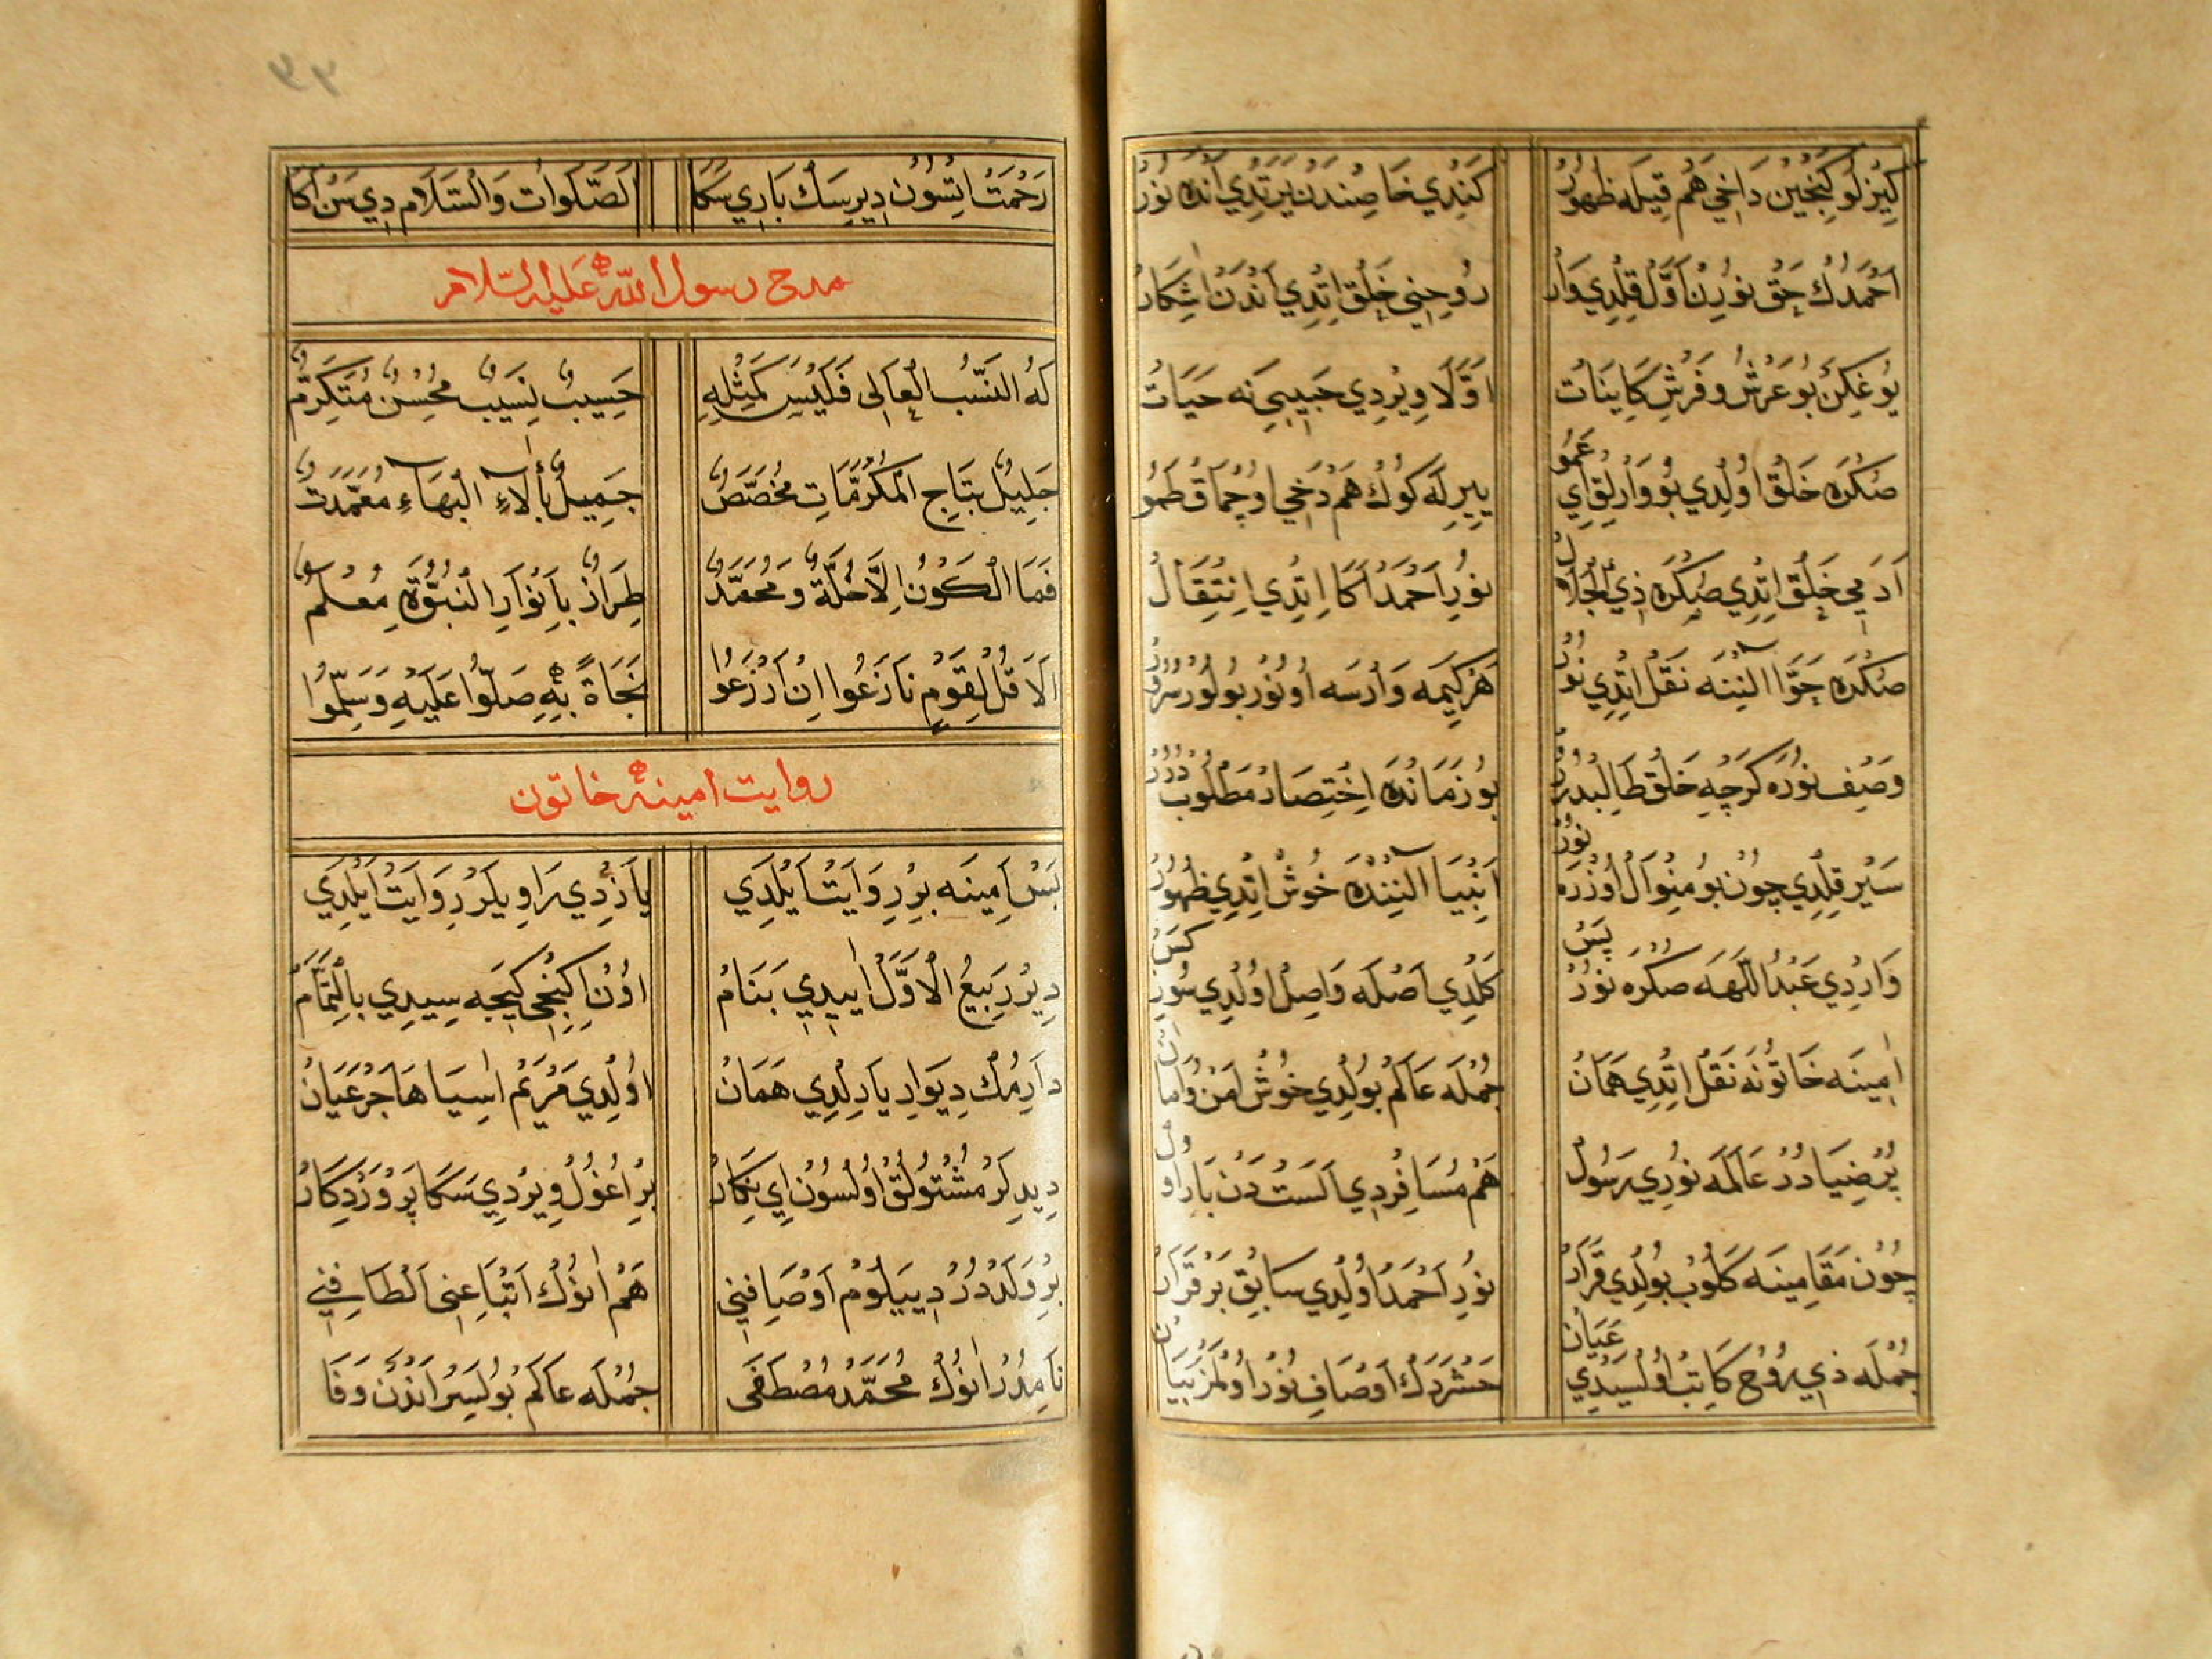 كِيزْلُو كِنْجِينْ دَاخِي هَمْ قِيلَه ظُهُورْ كَنْدِي خَاصِنْدَنْ يَرَتْدِي آنْدَه نُورْ
اَحْمَدُكْ حَقْ نُورِنْ اَوَّلْ قِلْدِي وَارْ رُوحِنِي خَلْقْ اِتْدِي اَنْدَنْ اٰشِكَارْ
يُوغِكَنْ بُو عَرْشُ و فَرْشِ كَايِنَاتْ اَوَّلَا وِيرْدِي حَبِيبِي نَه حَيَاتْ
صُكْرَه خَلْقْ اُولْدِي بُو وَارْلِقْ اِي عَمُو يِيرِ لَه كُوكْ هَمْ دَخِي اُوچْمَاقْ طَمُو
اٰدَمِي خَلْقْ اِتْدِي صُكْرَه ذِي الْجَلَالْ نُورِ اَحْمَدْ اَكَا اِتْدِي اِنْتِقَالْ
صُكْرَه حَوَّا اٰلْنِنَه نَقْلْ اِتْدِي نُورْ هَرْ كِيمَه وَارْسَه اُو نُورْ بُولُورْ سُرُورْ
وَصْفِ نُورَه كَرْچَه خَلْقْ طَالِبْدُرُرْ بُو زَمَانْدَه اِخْتِصَارْ مَطْلُوبْدُرُرْ
سَيْرْ قِلْدِي چُونْ بُو مِنْوَالْ اُوزْرَه نُورْ اَنْبِيَا اٰلْنِنْدَه خُوشْ اِتْدِي ظُهُورْ
وَارْدِي عَبْدُ اللّٰهَه صُكْرَه نُورْ پَسْ كَلْدِي اَصْلَه وَاصِلْ اُولْدِي نُورِ كَسْ
اٰمِينَه خَاتُونَه نَقْلْ اِتْدِي هَمَانْ جُمْلَه عَالَمْ بُولْدِي خُوشْ اَمْنُ و اَمَانْ
پُرْ ضِيَادُرْ عَالَمَه نُورِي رَسُولْ هَمْ مُسَافِرْدِي اَلَسْتْدَنْ بَارِ اُولْ
چُونْ مَقَامِينَه كَلُوبْ بُولْدِي قَرَارْ نُورِ اَحْمَدْ اُولْدِي سَابِقْ بَرْ قَرَارْ
جُمْلَه ذِي رُوحْ كَاتِبْ اُولْسَيْدِي عَيَانْ حَشْرَدَكْ اَوْصَافِ نُورْ اُولْمَزْ بَيَانْ
رَحْمَتْ اِتْسُونْ دِيرِسَكْ بَارِي سَكَا اَلصَّلَوَاتْ وَالسَّلَامْ دِي سَنْ اَكَا
مدح رسول الله عليه السلام
لَهُ النَّسَبُ الْعَالِى فَلَيْسَ كَمِثْلِهِ حَسِيبٌ نَسِيبٌ مُحْسِنٌ مُتَكَرِّمٌ
جَلِيلٌ بِتَاجِ الْمَكْرُمَاتِ مُخَصَّصٌ جَمِيلٌ بِأٰلَاءِ الْبَهَاءِ مُعَمَّدَتٌ
فَمَا الْكَوْنُ اِلَّا حُلَّةٌ وَمُحَمَّدٌ طِرَازٌ بِاَنْوَارِ النُّبُوَّةِ مُعْلَمٌ
اَلَا قُلْ لِقَوْمٍ نَازَعُوا اِنْ اَرَدْ زَعُوا نَجَاةً بِهِ صَلُّوا عَلَيْهِ وَسَلِّمُوا
روايت امينه خاتون
بَسْ اَمِينَه بِرْ رِوَايَتْ اَيْلَدِي يَازْدِي رَاوِيلَرْ رِوَايَتْ اَيْلَدِي
دِيرْ رَبِيعُ الْاَوَّلْ اٰيِيدِي بَنَامْ اُونِ اِكِنْجِي كِيجَه سِيدِي بِالتَّمَامْ
دَارِمُكْ دِيوَارِ يَارِلْدِي هَمَانْ اُولْدِي مَرْيَمْ اٰسِيَا هَاجَرْ عَيَانْ
دِيدِلَرْ مُشْتُولُقْ اُولْسُونْ اِي نِكَارْ بِرْ اُغُولْ وِيرْدِي سَكَا پَرْوَرْدِكَارْ
بِرْ وَلَدْدُرْ دِييَلُومْ اَوْصَافِنِي هَمْ اٰنُوكْ اَتْبَاعِنِى اَلْطَافِنِي
نَامِدُرْ اٰنُوكْ مُحَمَّدْ مُصْطَفَى جُمْلَه عَالَمْ بُولِسَرْ اَنْدَنْ وَفَا